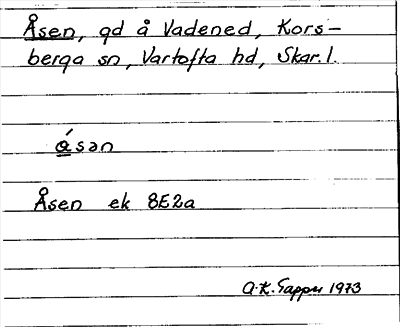 Åsen, gd å Vadened, Kors-
berga sn, Vartofta hd, Skar. l.
ásən
Åsen ek 8E2a
A.K. 1973